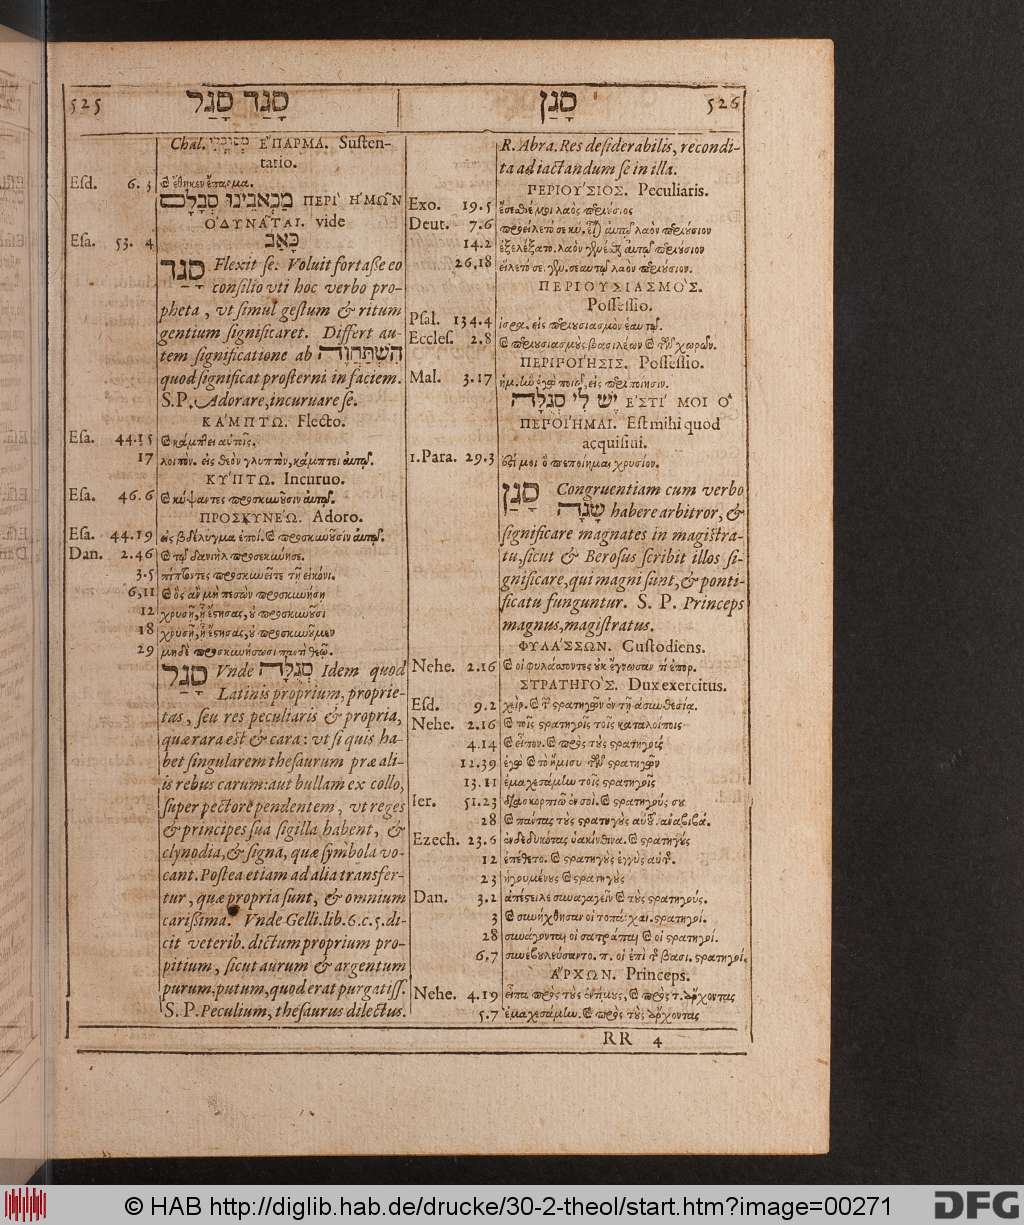 525
סָגַד סָגַל
סָגַן
526
Chal. ΕΠΑΡΜΑ. Susten-
tatio.
Esd. 6. 3
ΠΕΡΙ ΗΜΩΝ
ΟΔΥΝΑΤΑΙ. vide
Esa. 53. 4 כָּאַב
סָגַד Flexit se. Voluit fortasse eo
consilio vti hoc verbo pro-
pheta, vt simul gestum & ritum
gentium significaret. Differt au-
tem significatione ab הִשְׁתַּחֲוָה
quod significat prosterni in faciem.
S.P. Adorare, incuruare se.
ΚΑΜΠΤΩ. Flecto.
Esa. 44.15 κάμπτει
17 λοιπὸν. εἰς θεὸν γλυπτὸν, κάμπτει αὐτῷ.
ΚΥΠΤΩ. Incuruo.
Esa. 46.6 κύψαντες προσκυνοῦσιν αὐτῷ.
ΠΡΟΣΚΥΝΕΩ. Adoro.
Esa. 44.19 εἰς βδέλυγμα ἐποί. προσκυνοῦσιν αὐτῷ.
Dan. 2.46 τῷ δανιὴλ προσεκύνησε.
3.5 πίπτοντες προσκυνεῖτε τῇ εἰκόνι.
6,11 ὃς ἂν μὴ πεσὼν προσκυνήσῃ
12 χρυσῇ, ᾗ ἔστησας, οὐ προσκυνοῦσι
18 χρυσῇ, ᾗ ἔστησας, οὐ προσκυνοῦμεν
29 μηδὲ προσκυνήσωσι παντὶ θεῷ.
סָגַל Vnde סְגֻלָּה Idem quod
Latinis proprium, proprie-
tas, seu res peculiaris & propria,
quæ rara est & cara: vt si quis ha-
bet singularem thesaurum præ ali-
is rebus carum: aut bullam ex collo,
super pectore pendentem, vt reges
& principes sua sigilla habent, &
clynodia, & signa, quæ symbola vo-
cant. Postea etiam ad alia transfer-
tur, quæ propria sunt, & omnium
carissima. Vnde Gelli. lib. 6. c. 5. di-
cit veterib. dictum proprium pro-
pitium, sicut aurum & argentum
purum, putum, quod erat purgatiss.
S. P. Peculium, thesaurus dilectus.
R. Abra. Res desiderabilis, recondi-
ta ad iactandum se in illa.
ΠΕΡΙΟΥΣΙΟΣ. Peculiaris.
Exo. 19.5 λαὸς περιούσιος
Deut. 7.6 λαὸν περιούσιον
14.2 ἐξελέξατο. λαὸν περιούσιον
26,18 λαὸν περιούσιον.
ΠΕΡΙΟΥΣΙΑΣΜΟΣ.
Possessio.
Psal. 134.4 ἰσρα. εἰς περιουσιασμὸν ἑαυτῷ.
Eccles. 2.8 περιουσιασμοὺς βασιλέων χωρῶν.
ΠΕΡΙΠΟΙΗΣΙΣ. Possessio.
Mal. 3.17 εἰς περιποίησιν.
יֶשׁ לִי סְגֻלָּה ΕΣΤΙ ΜΟΙ Ο
ΠΕΠΟΙΗΜΑΙ. Est mihi quod
acquisiui.
1.Para. 29.3 ἔστι μοι ὃ πεποίημαι χρυσίον.
סָגַן Congruentiam cum verbo
שָׂגָה habere arbitror, &
significare magnates in magistra-
tu, sicut & Berosus scribit illos si-
gnificare, qui magni sunt, & ponti-
ficatu funguntur. S. P. Princeps
magnus, magistratus.
ΦΥΛΑΣΣΩΝ. Custodiens.
Nehe. 2.16 οἱ φυλάσσοντες οὐκ ἔγνωσαν τί ἐπορ.
ΣΤΡΑΤΗΓΟΣ. Dux exercitus.
Esd. 9.2 χεὶρ. στρατηγῶν ἐν τῇ ἀσυνθεσία.
Nehe. 2.16 τοῖς στρατηγοῖς τοῖς καταλοίποις
4.14 εἶπον. πρὸς τοὺς στρατηγοὺς
12.39 ἐγὼ τὸ ἥμισυ τῶν στρατηγῶν
13.11 ἐμαχεσάμην τοῖς στρατηγοῖς
Ier. 51.23 διασκορπιῶ ἐν σοὶ. στρατηγούς σου
28 πάντας τοὺς στρατηγοὺς
Ezech. 23.6 ἐνδεδυκότας ὑακίνθινα. στρατηγοὺς
12 ἐπέθετο. στρατηγοὺς ἐγγὺς αὐτῆς.
23 ἡγουμένους στρατηγοὺς
Dan. 3.2 ἀπέστειλε συναγαγεῖν τοὺς στρατηγούς.
3 συνήχθησαν οἱ τοπάρχαι. στρατηγοί.
28 συνάγονται οἱ σατράπαι οἱ στρατηγοί.
6,7 συνεβουλεύσαντο. π. οἱ ἐπὶ τῆς βασι. στρατηγοί.
ΑΡΧΩΝ. Princeps.
Nehe. 4.19 εἶπα πρὸς τοὺς ἐντίμους, πρὸς τ. ἄρχοντας
5.7 ἐμαχεσάμην. πρὸς τοὺς ἄρχοντας
RR 4
© HAB http://diglib.hab.de/drucke/30-2-theol/start.htm?image=00271
DFG